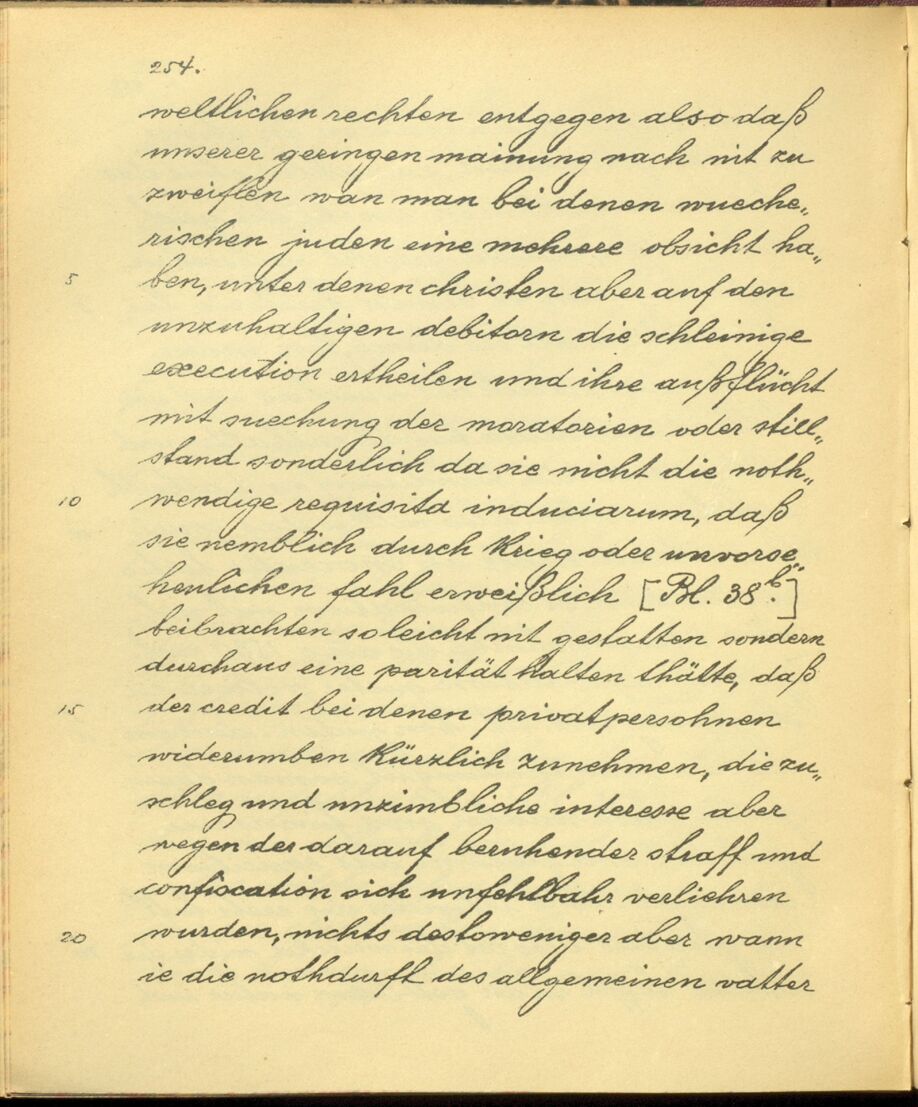 254.
weltlichen rechten entgegen also daß
unserer geringen mainung nach nit zu
zweiflen wan man bei denen wueche„
rischen juden eine mehrere obsicht ha„
5 ben, unter denen christen aber auf den
unzuhaltigen debitorn die schleinige
execution ertheilen und ihre außflücht
mit suechung der moratorien oder still„
stand sonderlich da sie nicht die noth„
10 wendige requisita induciarum, daß
sie nemblich durch Krieg oder unvorse„
henlichen fahl erweißlich [Bl. 38b.]
beibrachten so leicht nit gestatten sondern
durchaus eine parität halten thätte, daß
15 der credit bei denen privatpersohnen
widerumben Kürzlich zunehmen, die zu„
schleg und unzimbliche interesse aber
wegen der darauf beruhender straff und
confiscation sich unfehlbahr verliehren
20 wurden, nichts destoweniger aber wann
ie die nothdurft des allgemeinen vatter